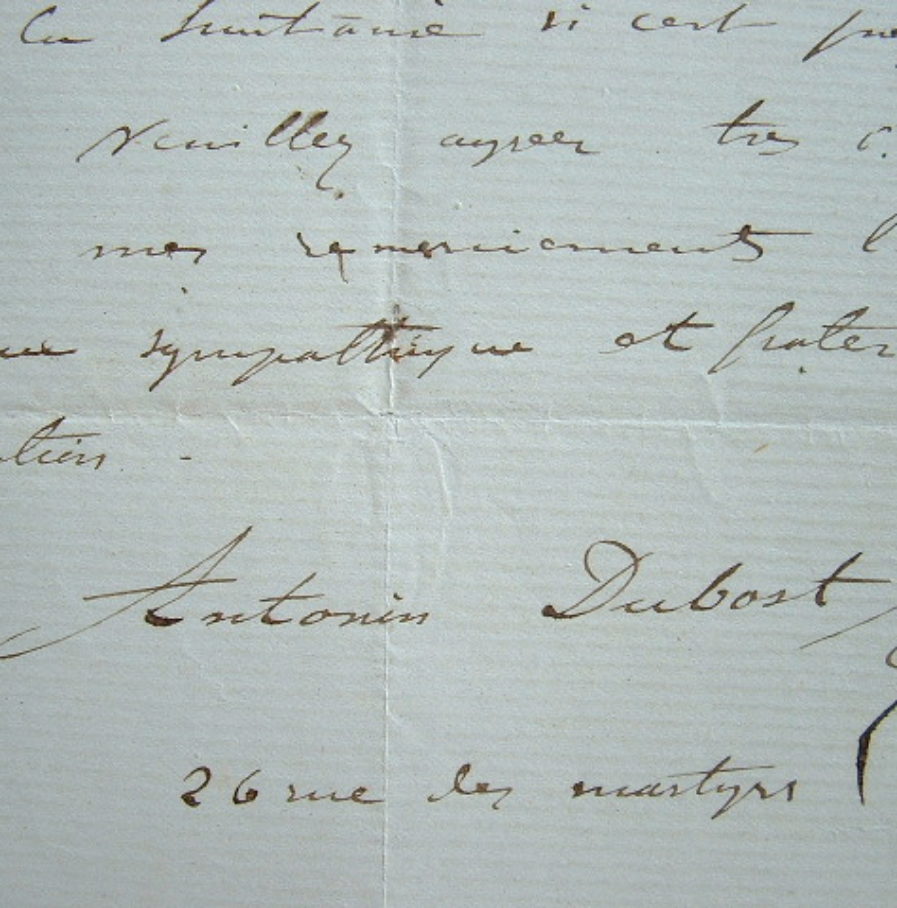 la huitaine si c'est
veuillez agréer très
mes remerciements
sympathique et frater
Antonin Dubost
26 rue des martyrs